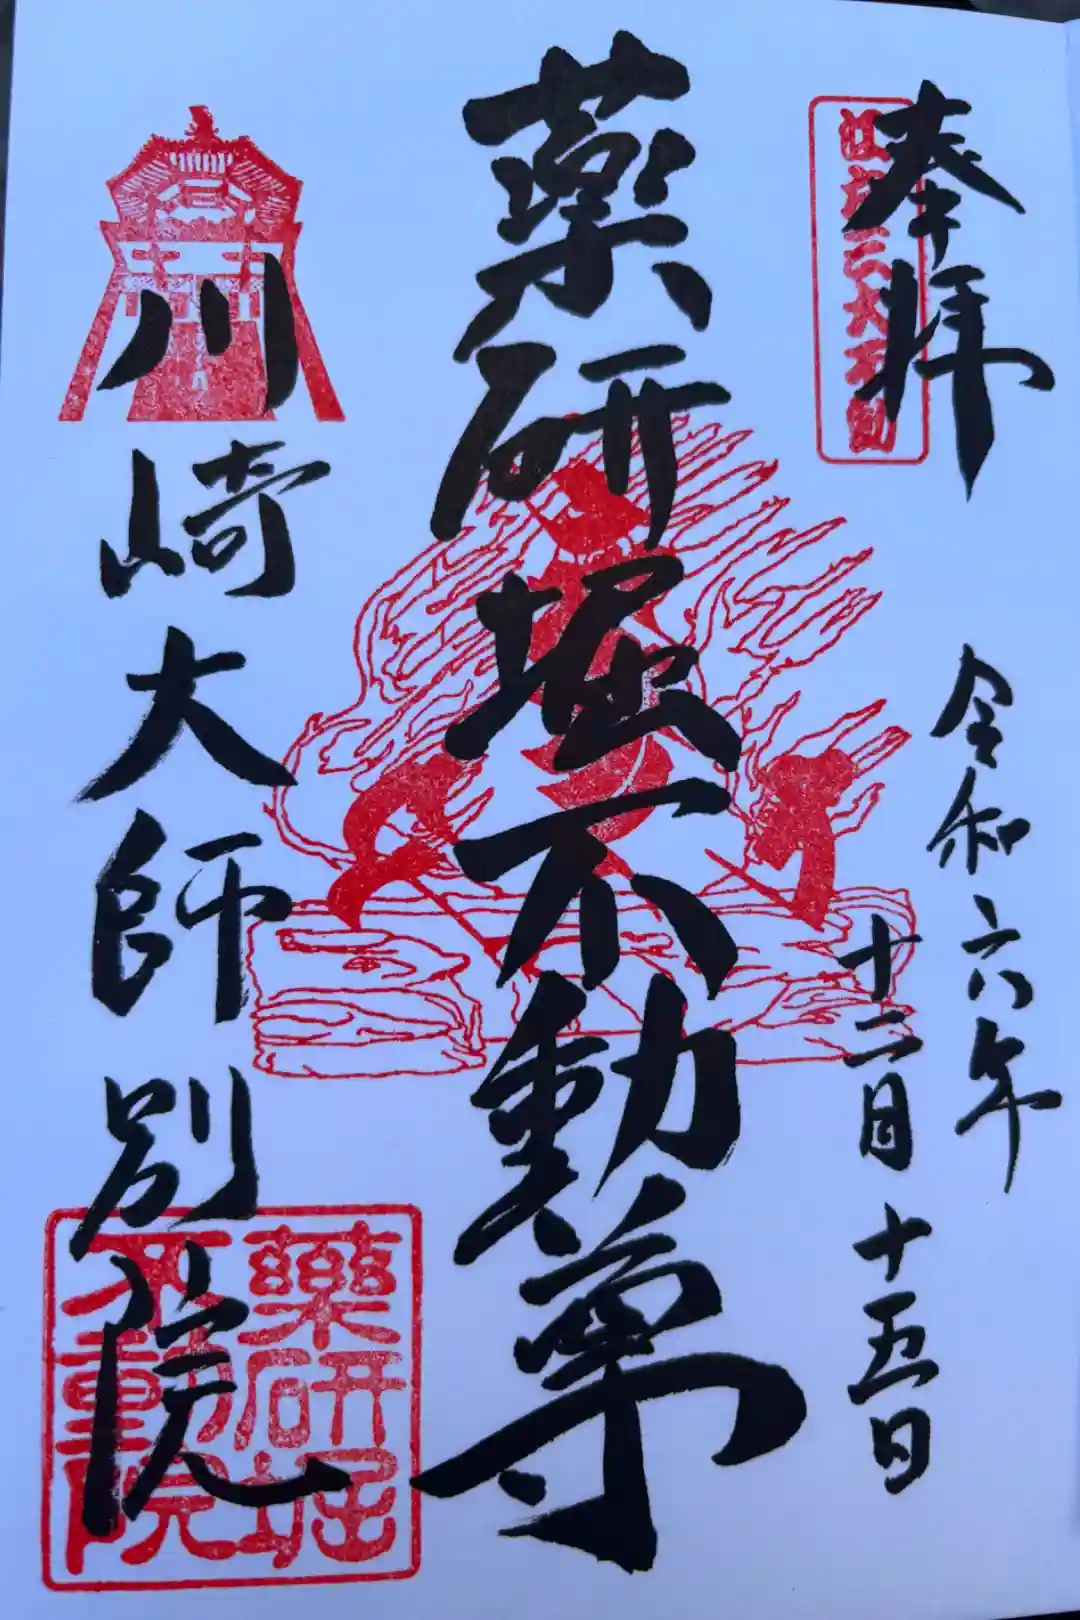 奉拝
江戸三大不動
令和六年
十二月十五日
薬研堀不動尊
川崎大師別院
薬研堀
不動院